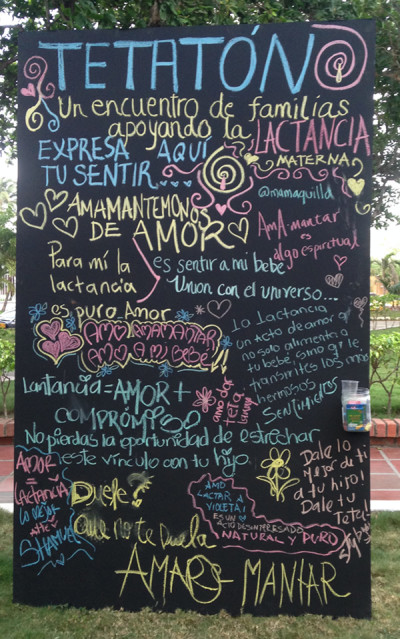 TETATÓN
Un encuentro de familias
apoyando la LACTANCIA
MATERNA
EXPRESA AQUI
TU SENTIR...
@mamaquilla
AMAMANTEMONOS
DE AMOR
AMA-mantar
es
algo espiritual
Para mí la
lactancia
es sentir a mi bebe
Union con el universo...
es puro Amor
AMO AMAMANTAR
AMO A MI BEBÉ!!
La Lactancia
un acto de amor q'
no solo alimenta a
tu bebé, sino q' le
transmites los mas
hermosos
SENTIMIENTOS
Lantancia = AMOR +
COMPROMISO
amo dar
teta
No pierdas la oportunidad de estrechar
este vinculo con tu hijo.
AMOR
=
LACTANCIA
lo mejor
SHAMUEL
Duele?
que no te duela
AMO
LACTAR A
VIOLETA!
ES UN
ACTO DESINTERESADO
NATURAL Y PURO
Dale lo
Mejor de ti
a tu hijo!
Dale tu
Teta!
AMAR - MANTAR